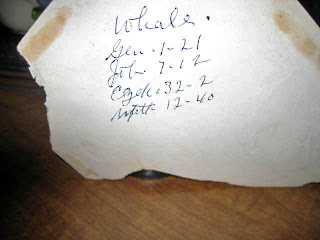 Whales.
Gen. 1-21
Job 7-12
Ezek. 32-2
Matt. 12-40